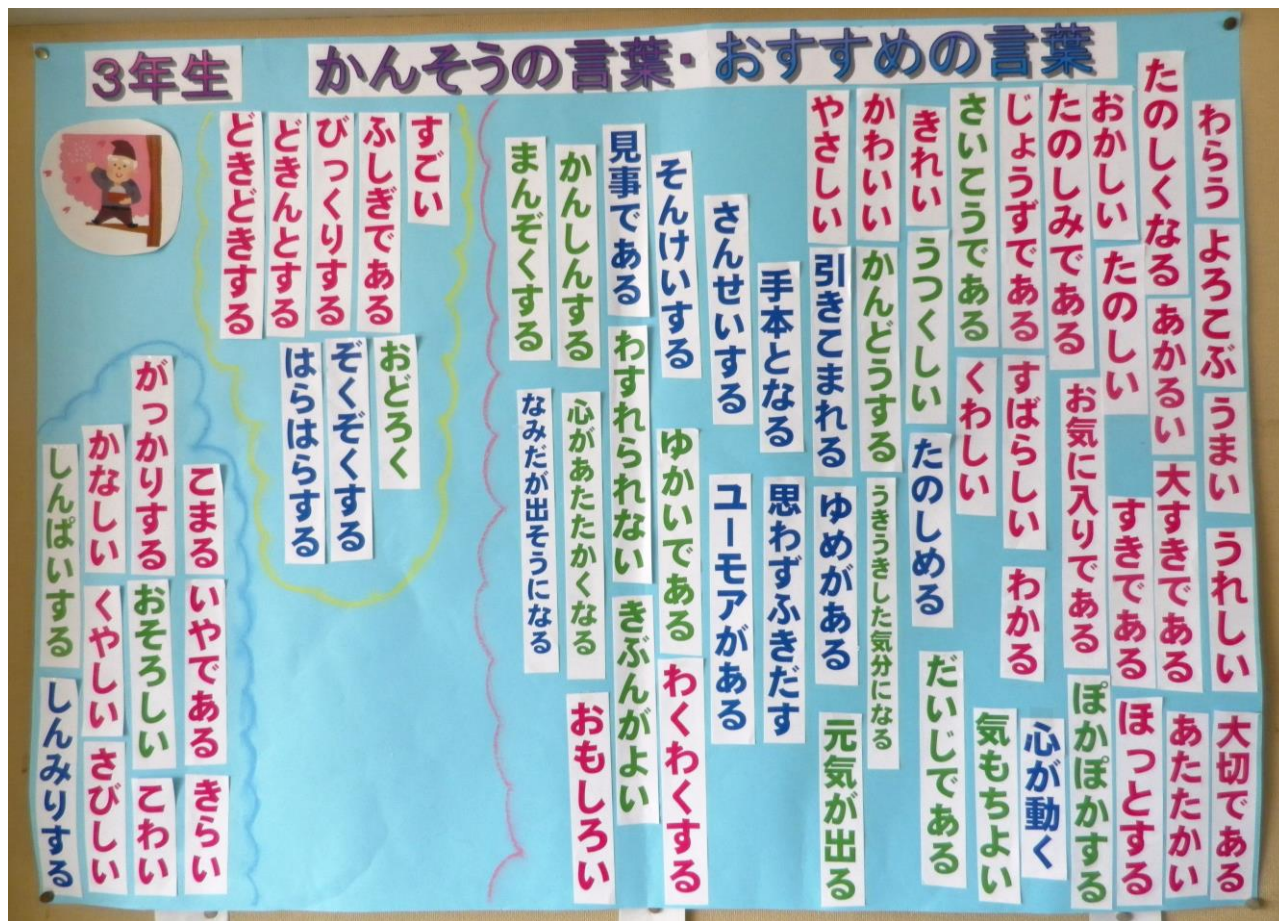 3年生
かんそうの言葉・おすすめの言葉
わらう
よろこぶ
うまい
うれしい
大切である
たのしくなる
あかるい
大すきである
あたたかい
おかしい
たのしい
すきである
ほっとする
たのしみである
お気に入りである
ぽかぽかする
じょうずである
すばらしい
わかる
心が動く
さいこうである
くわしい
気もちよい
きれい
うつくしい
たのしめる
だいじである
かわいい
かんどうする
うきうきした気分になる
やさしい
引きこまれる
ゆめがある
元気が出る
手本となる
思わずふきだす
さんせいする
ユーモアがある
そんけいする
ゆかいである
わくわくする
見事である
わすれられない
きぶんがよい
かんしんする
心があたたかくなる
おもしろい
まんぞくする
なみだが出そうになる
すごい
おどろく
ふしぎである
ぞくぞくする
びっくりする
はらはらする
どきんとする
どきどきする
こまる
いやである
きらい
がっかりする
おそろしい
こわい
かなしい
くやしい
さびしい
しんぱいする
しんみりする